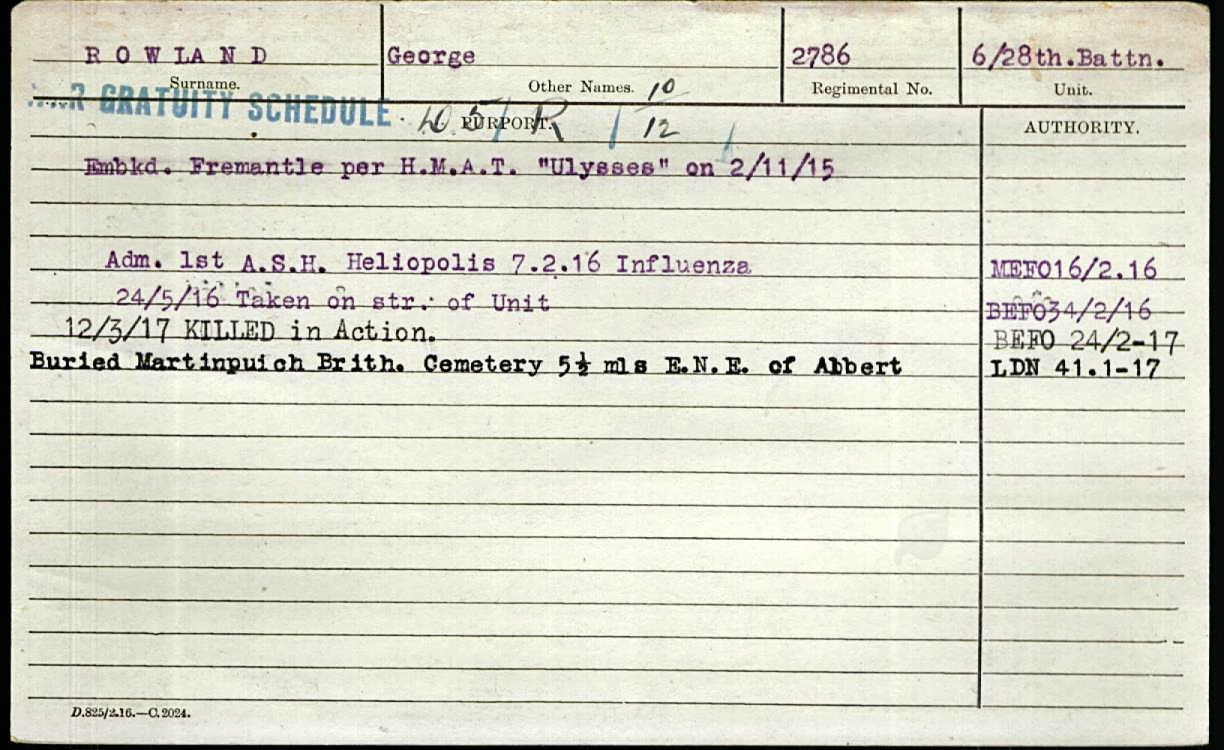 R O W LA N D George 2786 6/28th.Battn.
Surname. Other Names. 10 Regimental No. Unit.
GRATUITY SCHEDULE PURPORT. R 12 AUTHORITY.
Embkd. Fremantle per H.M.A.T. "Ulysses" on 2/11/15
Adm. 1st A.S.H. Heliopolis 7.2.16 Influenza MEFO16/2.16
24/5/16 Taken on str. of Unit BEFO34/2/16
12/3/17 KILLED in Action. BEFO 24/2-17
Buried Martinpuich Brith. Cemetery 5½ mls E.N.E. of Abbert LDN 41.1-17
D.825/2.16.—C.2024.